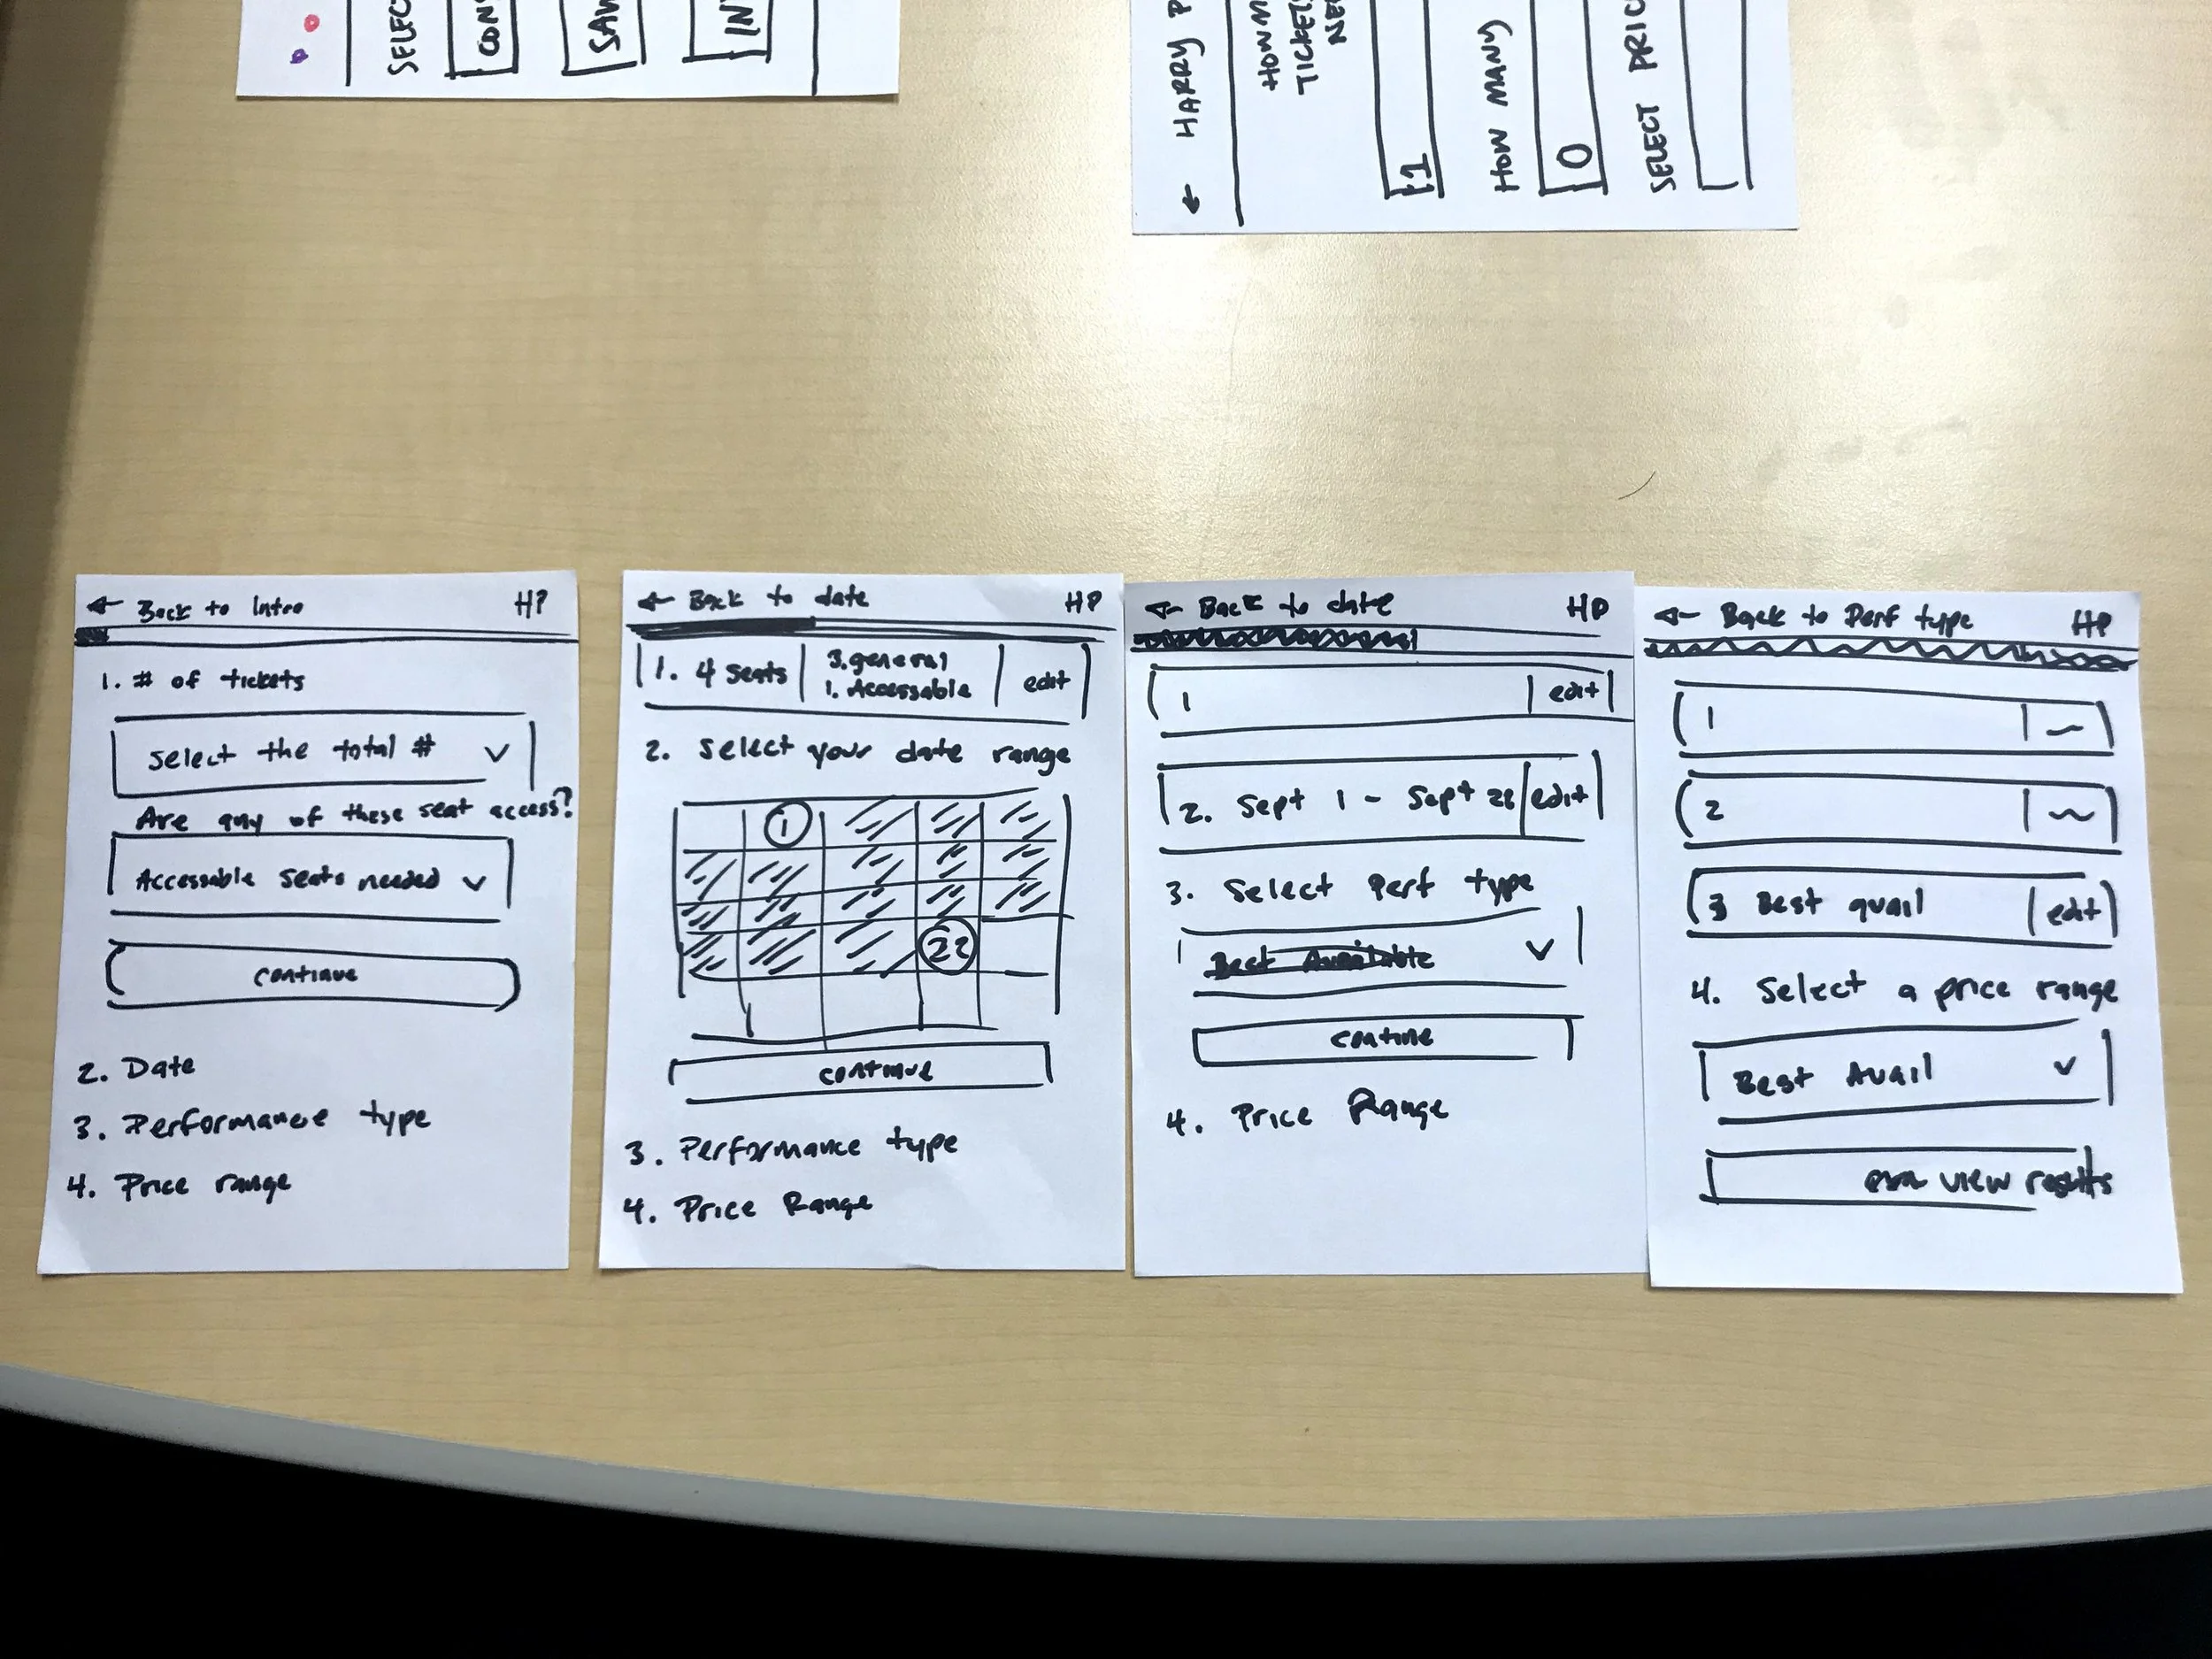 SELEC
CON
SAV
IN
← HARRY P
HOW M
TICKETS
NE
1
HOW MANY
0
SELECT PRIC
← Back to Intro HP
1. # of tickets
Select the total #
Are any of these seat access?
Accessable seats needed
continue
2. Date
3. Performance type
4. Price range
← Back to date HP
1. 4 seats 3. general edit
1. Accessable
2. Select your date range
1
22
continue
3. Performance type
4. Price Range
← Back to date HP
1 edit
2. Sept 1 - Sept 22 edit
3. Select Perf type
Best Available
contine
4. Price Range
← Back to Perf type HP
1
2
3 Best avail edit
4. Select a price range
Best Avail
view results